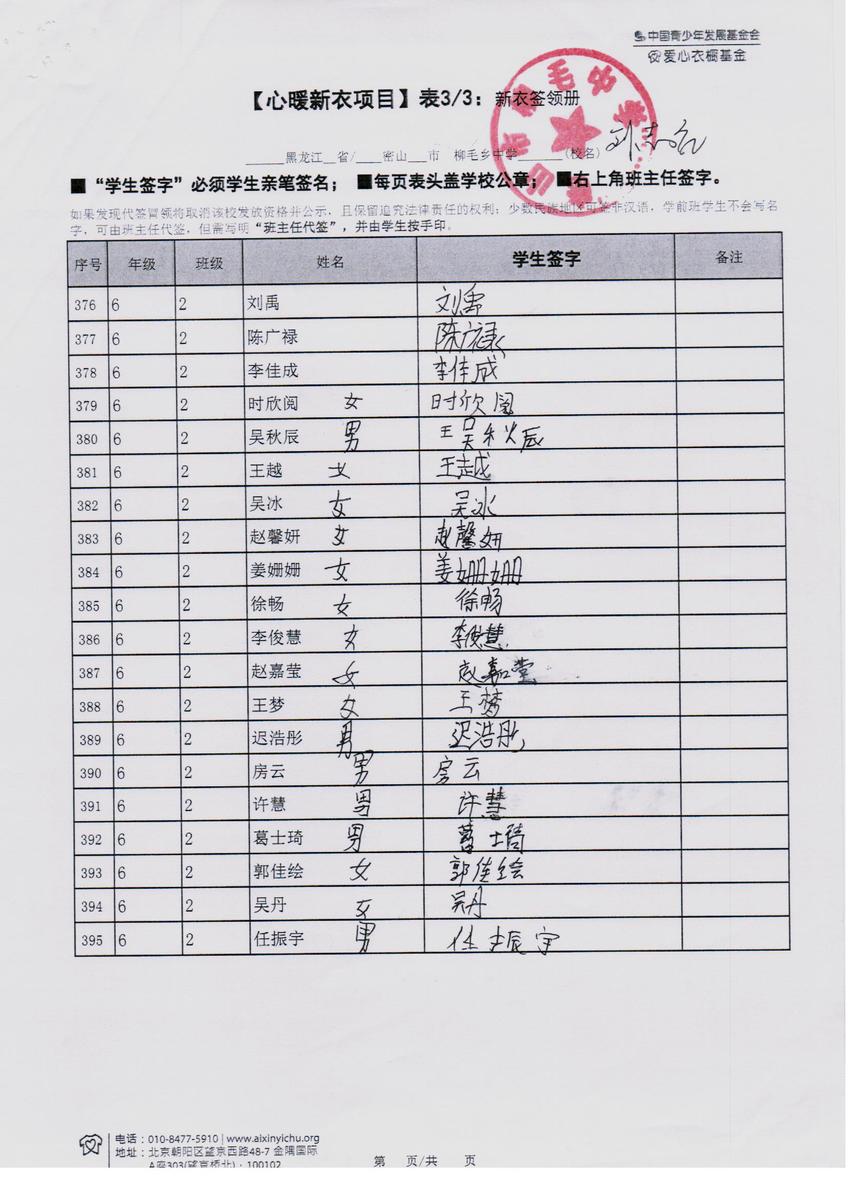 中国青少年发展基金会
爱心衣橱基金
【心暖新衣项目】表3/3：新衣签领册
黑龙江 省/ 密山 市 柳毛乡中学 (校名)
■“学生签字”必须学生亲笔签名； ■每页表头盖学校公章； ■右上角班主任签字。
如果发现代签冒领将取消该校发放资格并公示，且保留追究法律责任的权利；少数民族地区可签非汉语，学前班学生不会写名
字，可由班主任代签，但需写明“班主任代签”，并由学生按手印。
序号 年级 班级 姓名 学生签字 备注
376 6 2 刘禹 刘禹
377 6 2 陈广禄 陈广禄
378 6 2 李佳成 李佳成
379 6 2 时欣阅 女 时欣阅
380 6 2 吴秋辰 男 王吴秋辰
381 6 2 王越 女 王越
382 6 2 吴冰 女 吴冰
383 6 2 赵馨妍 女 赵馨妍
384 6 2 姜姗姗 女 姜姗姗
385 6 2 徐畅 女 徐畅
386 6 2 李俊慧 女 李俊慧
387 6 2 赵嘉莹 女 赵嘉莹
388 6 2 王梦 女 王梦
389 6 2 迟浩彤 男 迟浩彤
390 6 2 房云 男 房云
391 6 2 许慧 男 许慧
392 6 2 葛士琦 男 葛士琦
393 6 2 郭佳绘 女 郭佳绘
394 6 2 吴丹 女 吴丹
395 6 2 任振宇 男 任振宇
电话：010-8477-5910 | www.aixinyichu.org
地址：北京朝阳区望京西路48-7 金隅国际
A座303(望京桥北)，100102
第 页/共 页